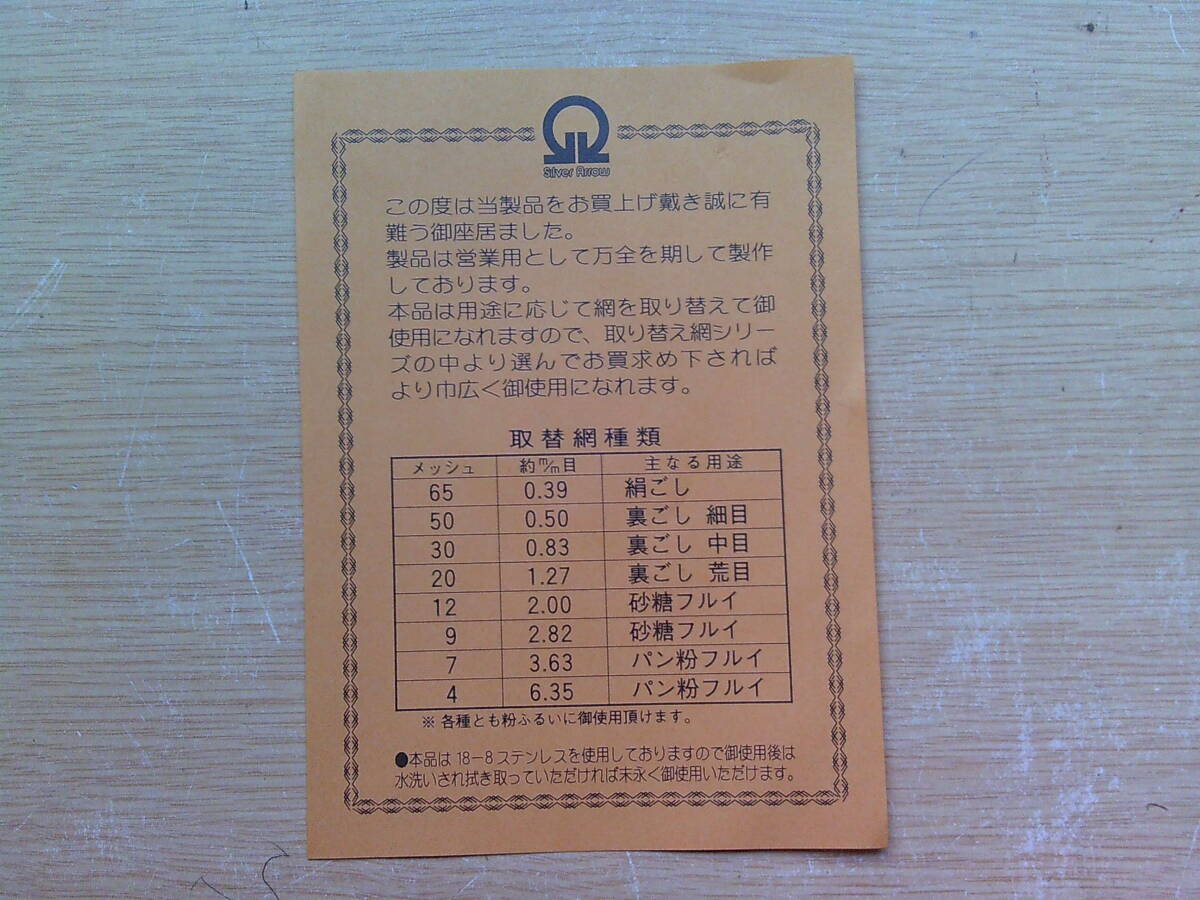 Silver Arrow
この度は当製品をお買上げ戴き誠に有
難う御座居ました。
製品は営業用として万全を期して製作
しております。
本品は用途に応じて網を取り替えて御
使用になれますので、取り替え網シリー
ズの中より選んでお買求め下されば
より巾広く御使用になれます。
取替網種類
メッシュ 約m/m目 主なる用途
65 0.39 絹ごし
50 0.50 裏ごし 細目
30 0.83 裏ごし 中目
20 1.27 裏ごし 荒目
12 2.00 砂糖フルイ
9 2.82 砂糖フルイ
7 3.63 パン粉フルイ
4 6.35 パン粉フルイ
※ 各種とも粉ふるいに御使用頂けます。
●本品は18-8ステンレスを使用しておりますので御使用後は
水洗いされ拭き取っていただければ末永く御使用いただけます。